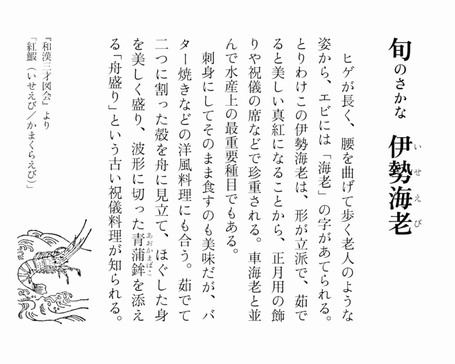 旬のさかな 伊勢海老
いせえび
ヒゲが長く、腰を曲げて歩く老人のような
姿から、エビには「海老」の字があてられる。
とりわけこの伊勢海老は、形が立派で、茹で
ると美しい真紅になることから、正月用の飾
りや祝儀の席などで珍重される。車海老と並
んで水産上の最重要種目でもある。
刺身にしてそのまま食すのも美味だが、バ
ター焼きなどの洋風料理にも合う。茹でて
二つに割った殻を舟に見立て、ほぐした身
を美しく盛り、波形に切った青蒲鉾を添え
あおかまぼこ
る「舟盛り」という古い祝儀料理が知られる。
『和漢三才図会』より
「紅鰕(いせえび/かまくらえび)」